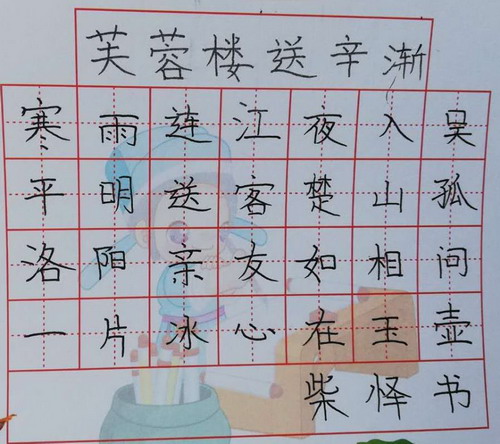 芙蓉楼送辛渐
寒雨连江夜入吴
平明送客楚山孤
洛阳亲友如相问
一片冰心在玉壶
柴怿书